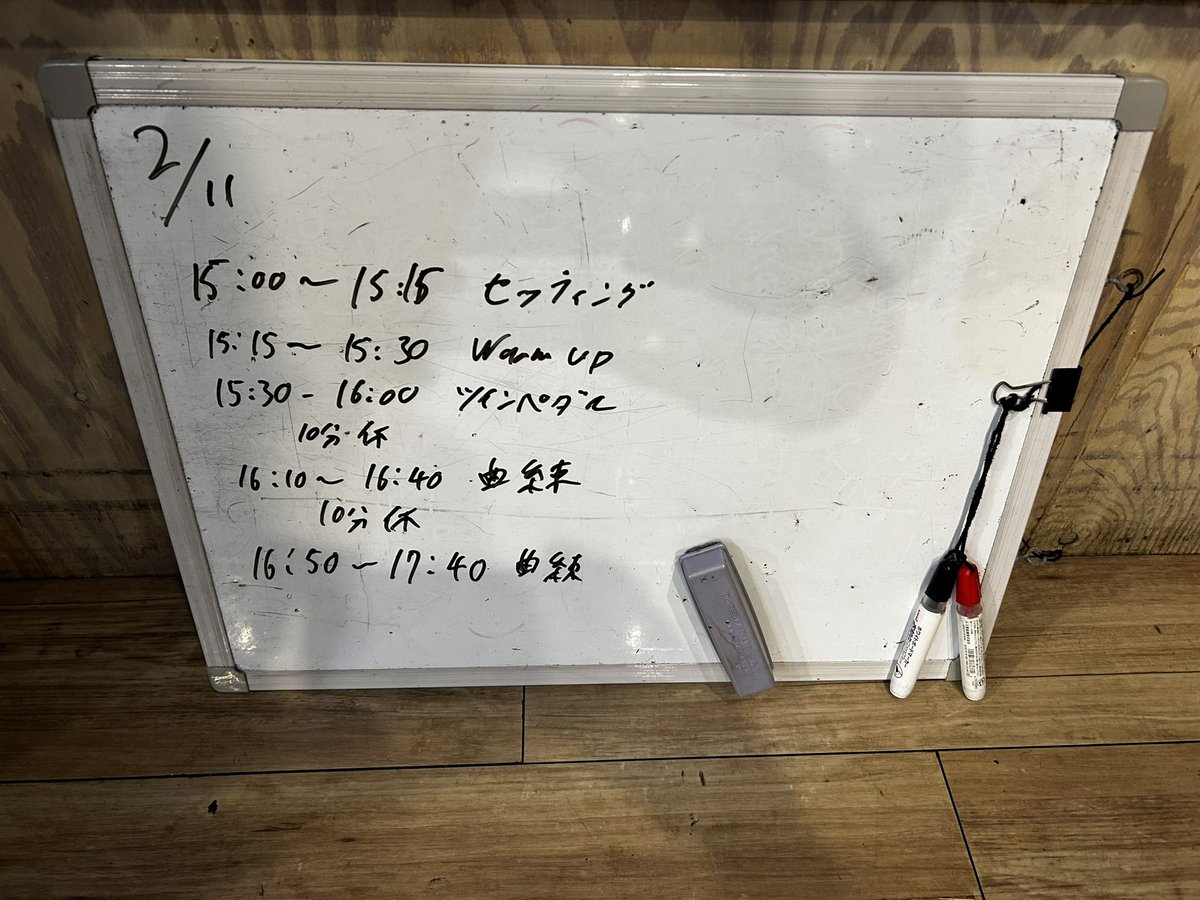 2/11
15:00〜15:15 セッティング
15:15〜15:30 Warm up
15:30-16:00 ツインペダル
10分休
16:10〜16:40 曲練
10分休
16:50〜17:40 曲練